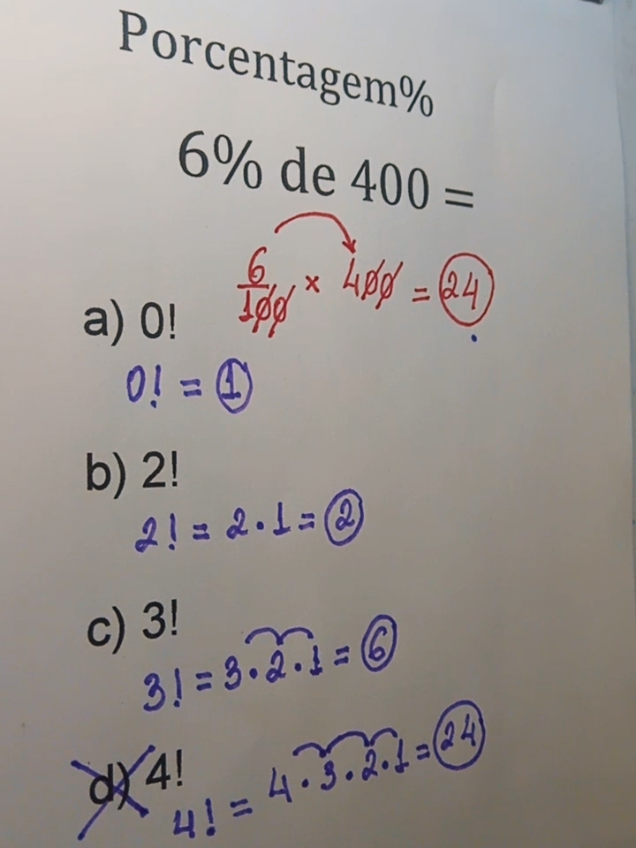 Porcentagem%
6% de 400 =
6/100 × 400 = 24
a) 0!
0! = 1
b) 2!
2! = 2·1 = 2
c) 3!
3! = 3·2·1 = 6
d) 4!
4! = 4·3·2·1 = 24